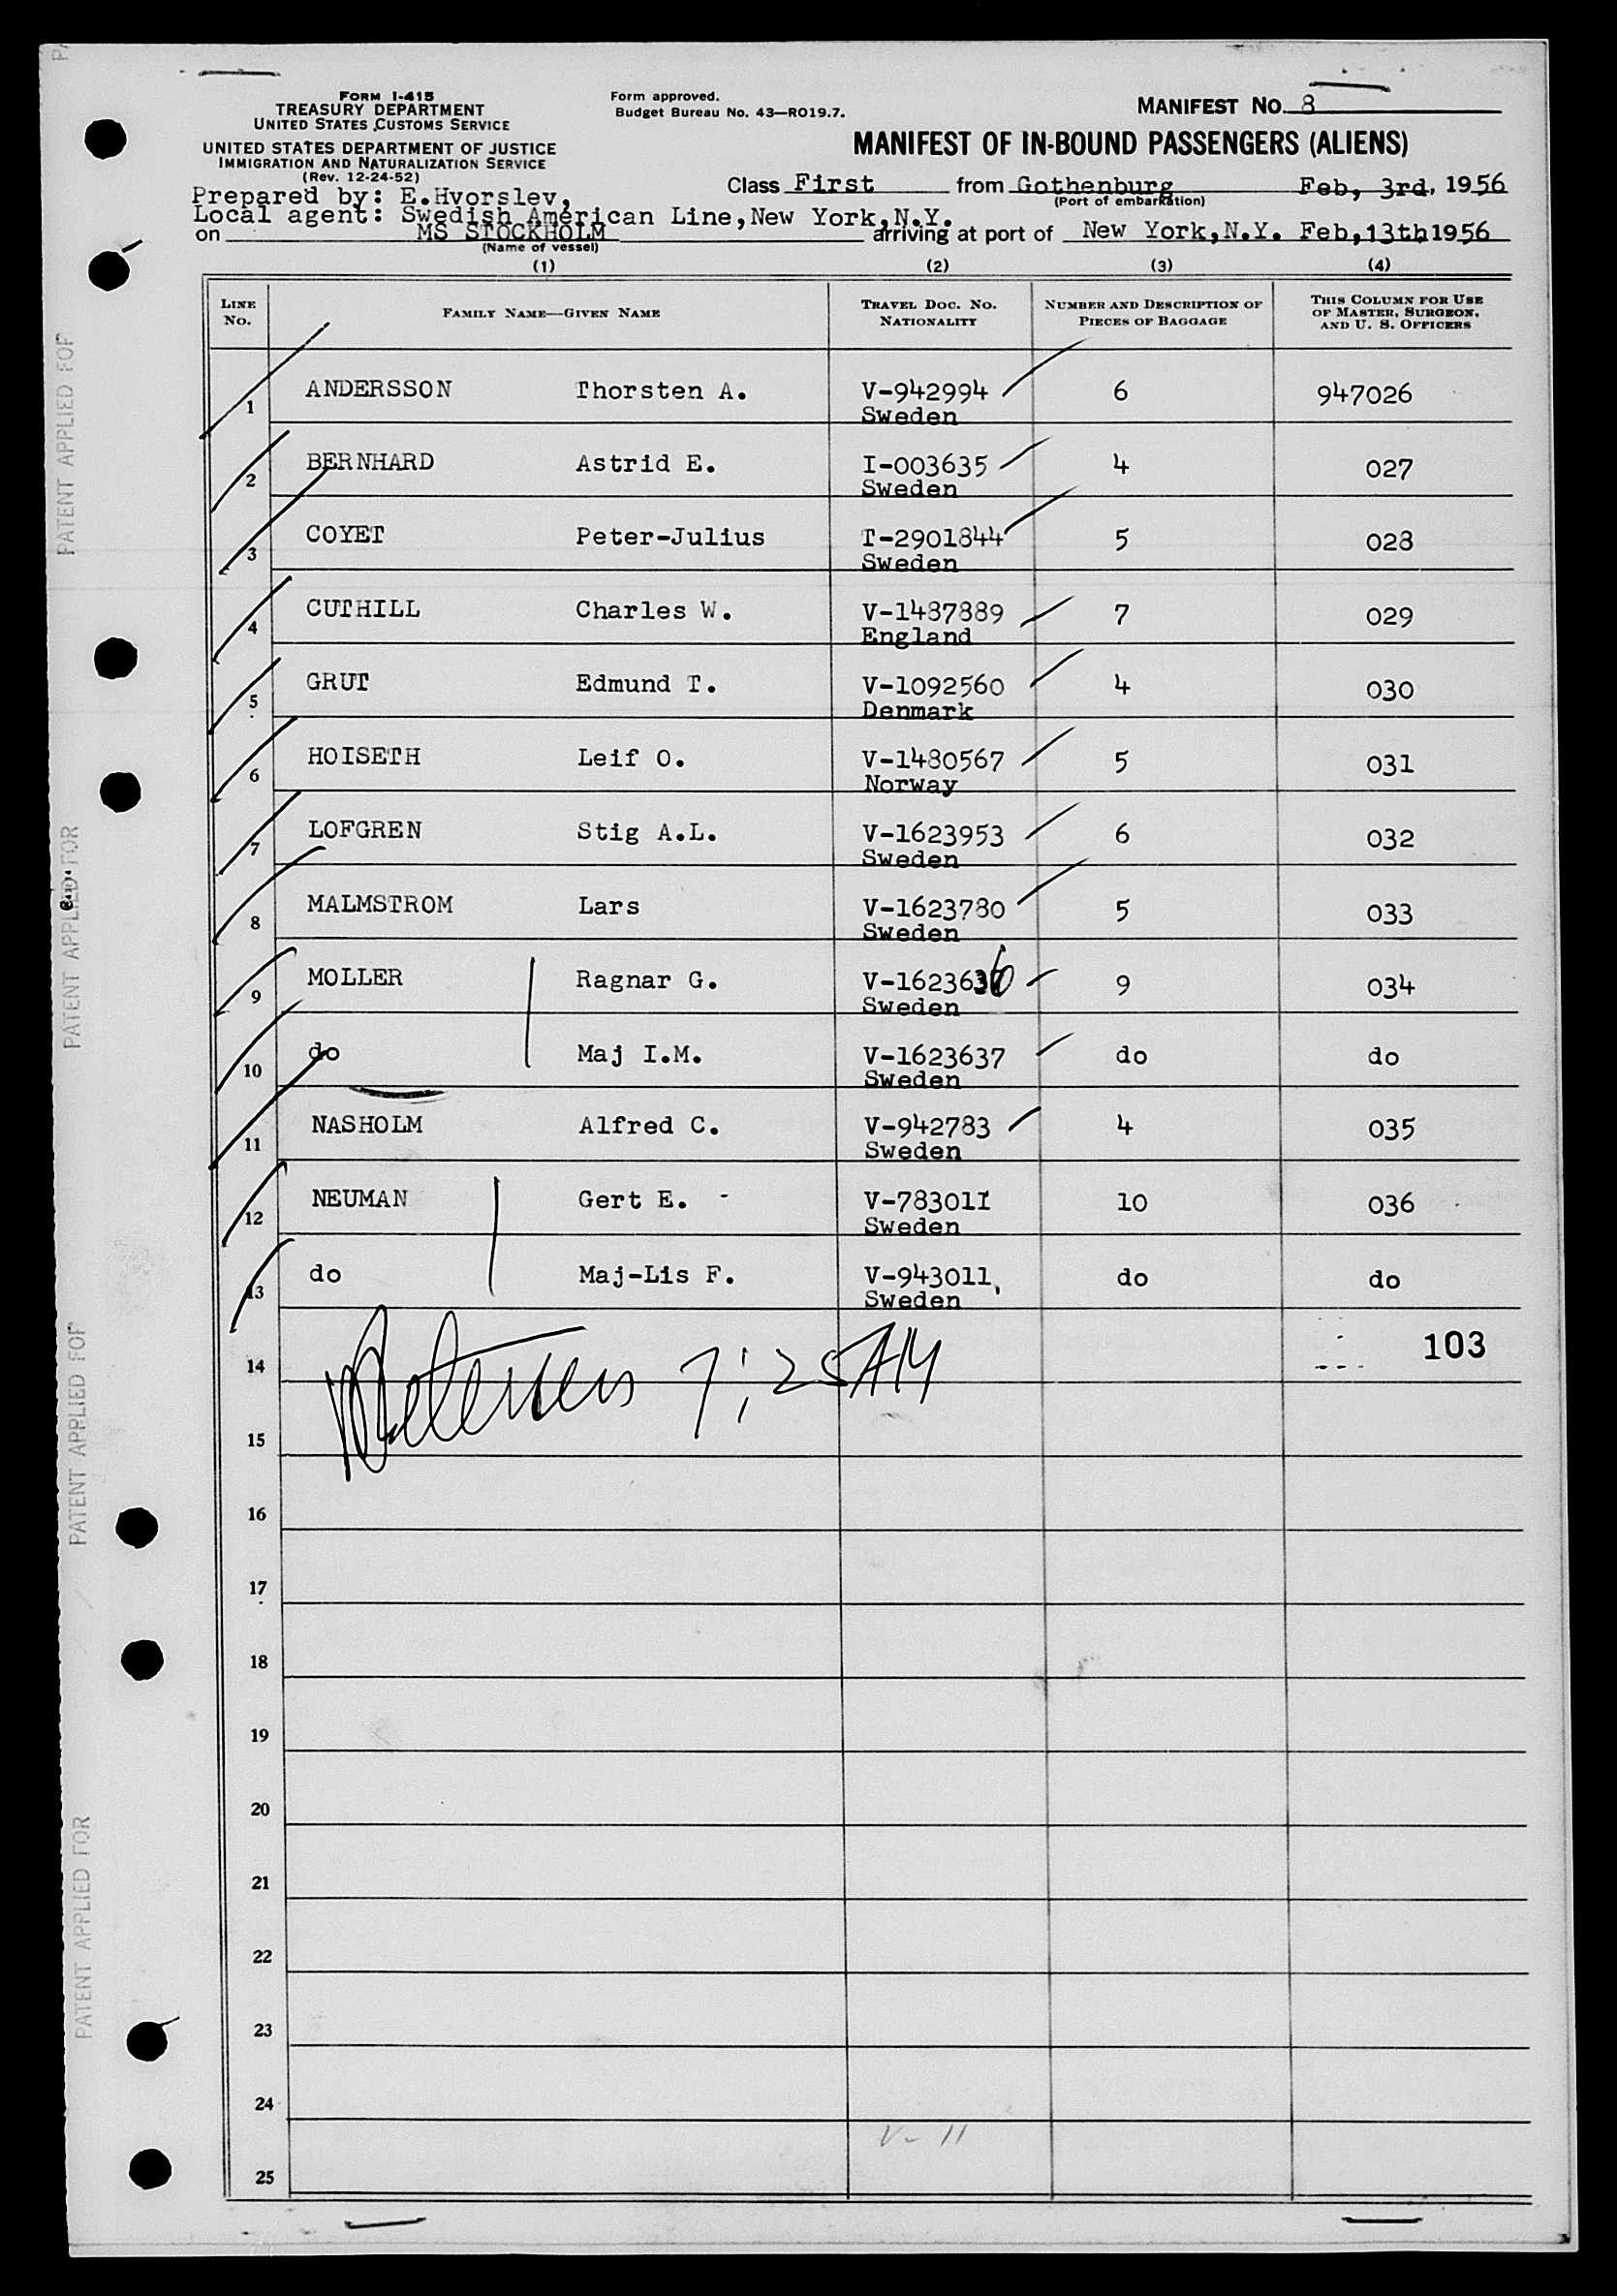 FORM I-415
TREASURY DEPARTMENT
UNITED STATES CUSTOMS SERVICE
UNITED STATES DEPARTMENT OF JUSTICE
IMMIGRATION AND NATURALIZATION SERVICE
(Rev. 12-24-52)
Form approved.
Budget Bureau No. 43—RO19.7.
MANIFEST NO. 8
MANIFEST OF IN-BOUND PASSENGERS (ALIENS)
Class First from Gothenburg Feb, 3rd, 1956
(Port of embarkation)
Prepared by: E.Hvorslev,
Local agent: Swedish American Line,New York,N.Y.
on MS STOCKHOLM arriving at port of New York,N.Y. Feb,13th 1956
(Name of vessel)
(1) (2) (3) (4)
LINE NO. FAMILY NAME—GIVEN NAME TRAVEL DOC. NO. NATIONALITY NUMBER AND DESCRIPTION OF PIECES OF BAGGAGE THIS COLUMN FOR USE OF MASTER, SURGEON, AND U. S. OFFICERS
1 ANDERSSON Thorsten A. V-942994 6 947026
Sweden
2 BERNHARD Astrid E. I-003635 4 027
Sweden
3 COYET Peter-Julius T-2901844 5 028
Sweden
4 CUTHILL Charles W. V-1487889 7 029
England
5 GRUT Edmund T. V-1092560 4 030
Denmark
6 HOISETH Leif O. V-1480567 5 031
Norway
7 LOFGREN Stig A.L. V-1623953 6 032
Sweden
8 MALMSTROM Lars V-1623780 5 033
Sweden
9 MOLLER Ragnar G. V-1623636 9 034
Sweden
10 do Maj I.M. V-1623637 do do
Sweden
11 NASHOLM Alfred C. V-942783 4 035
Sweden
12 NEUMAN Gert E. - V-783011 10 036
Sweden
13 do Maj-Lis F. V-943011 do do
Sweden
14 7:25AM 103
15
16
17
18
19
20
21
22
23
24
V- 11
25
PATENT APPLIED FOR
PATENT APPLIED FOR
PATENT APPLIED FOR
PATENT APPLIED FOR